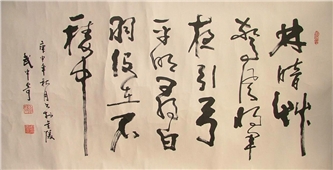 林暗艸
驚風將軍
夜引弓
平明尋白
羽没在石
稜中
武中奇